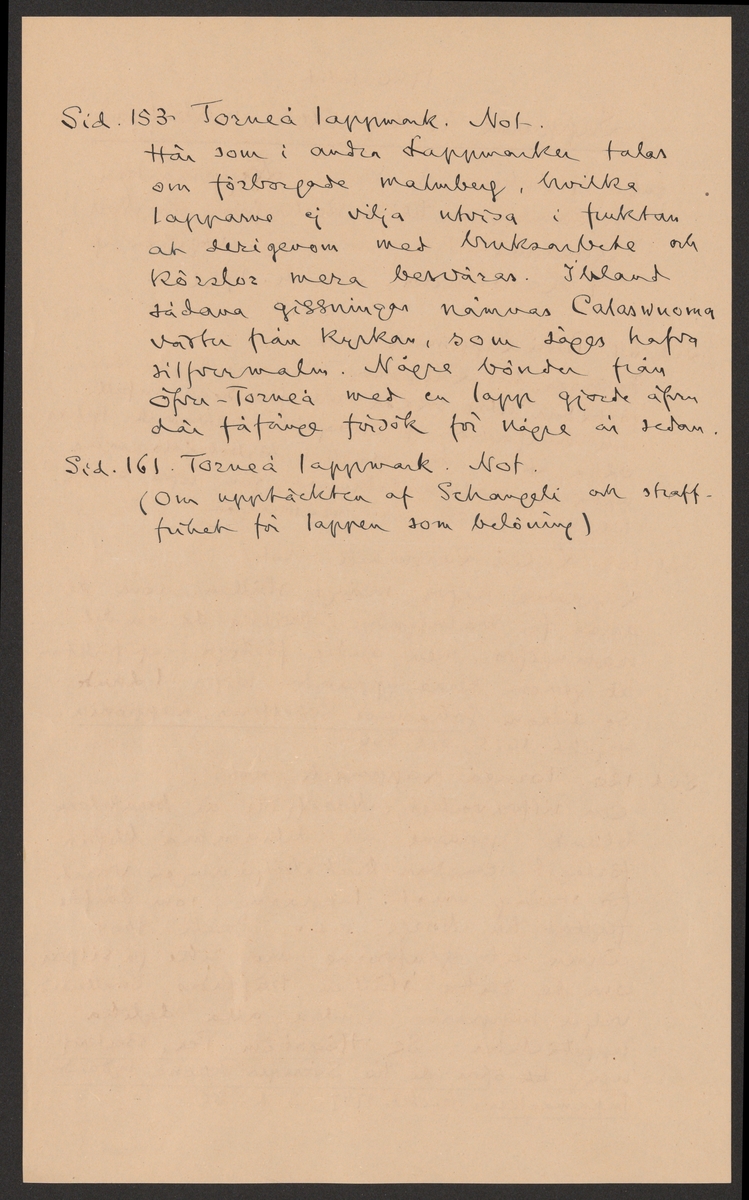 Sid. 153. Torneå lappmark. Not.
Här som i andra Lappmarker talas
om förborgade malmberg, hvilka
lapparne ej vilja utvisa i fruktan
at derigenom med bruksarbete och
körslor mera besväras. Ibland
sådana gissningar nämnas Calaswuoma
väster från kyrkan, som säges hafva
silfvermalm. Någre bönder från
Öfver-Torneå med en lapp gjorde äfven
där fåfänge försök för någre år sedan.
Sid. 161. Torneå lappmark. Not.
(Om upptäckten af Schangeli och straff-
frihet för lappen som belöning)